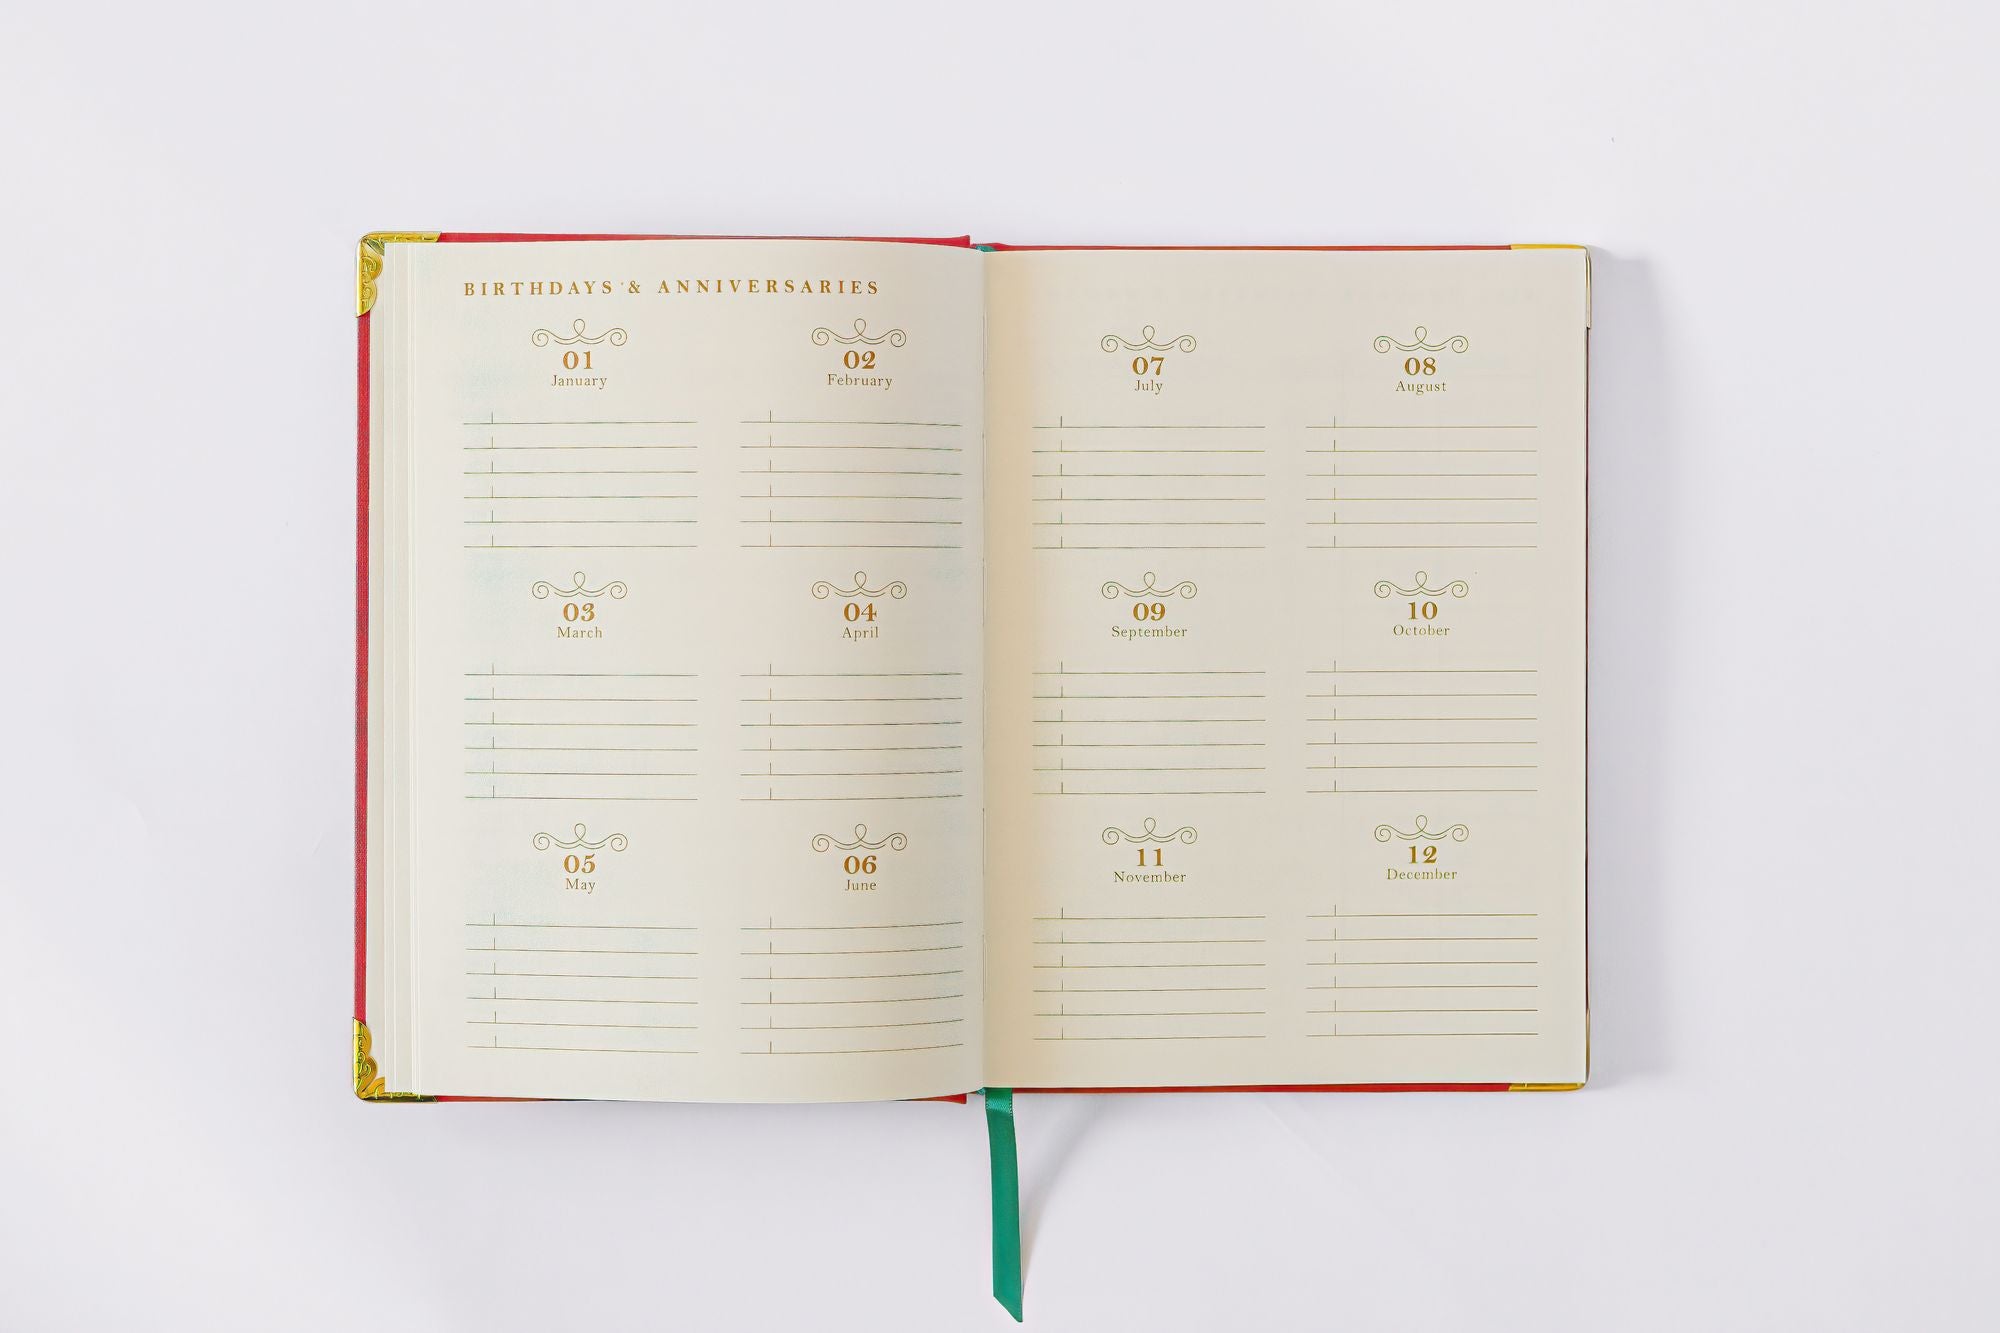 BIRTHDAYS & ANNIVERSARIES
01
January
02
February
03
March
04
April
05
May
06
June
07
July
08
August
09
September
10
October
11
November
12
December